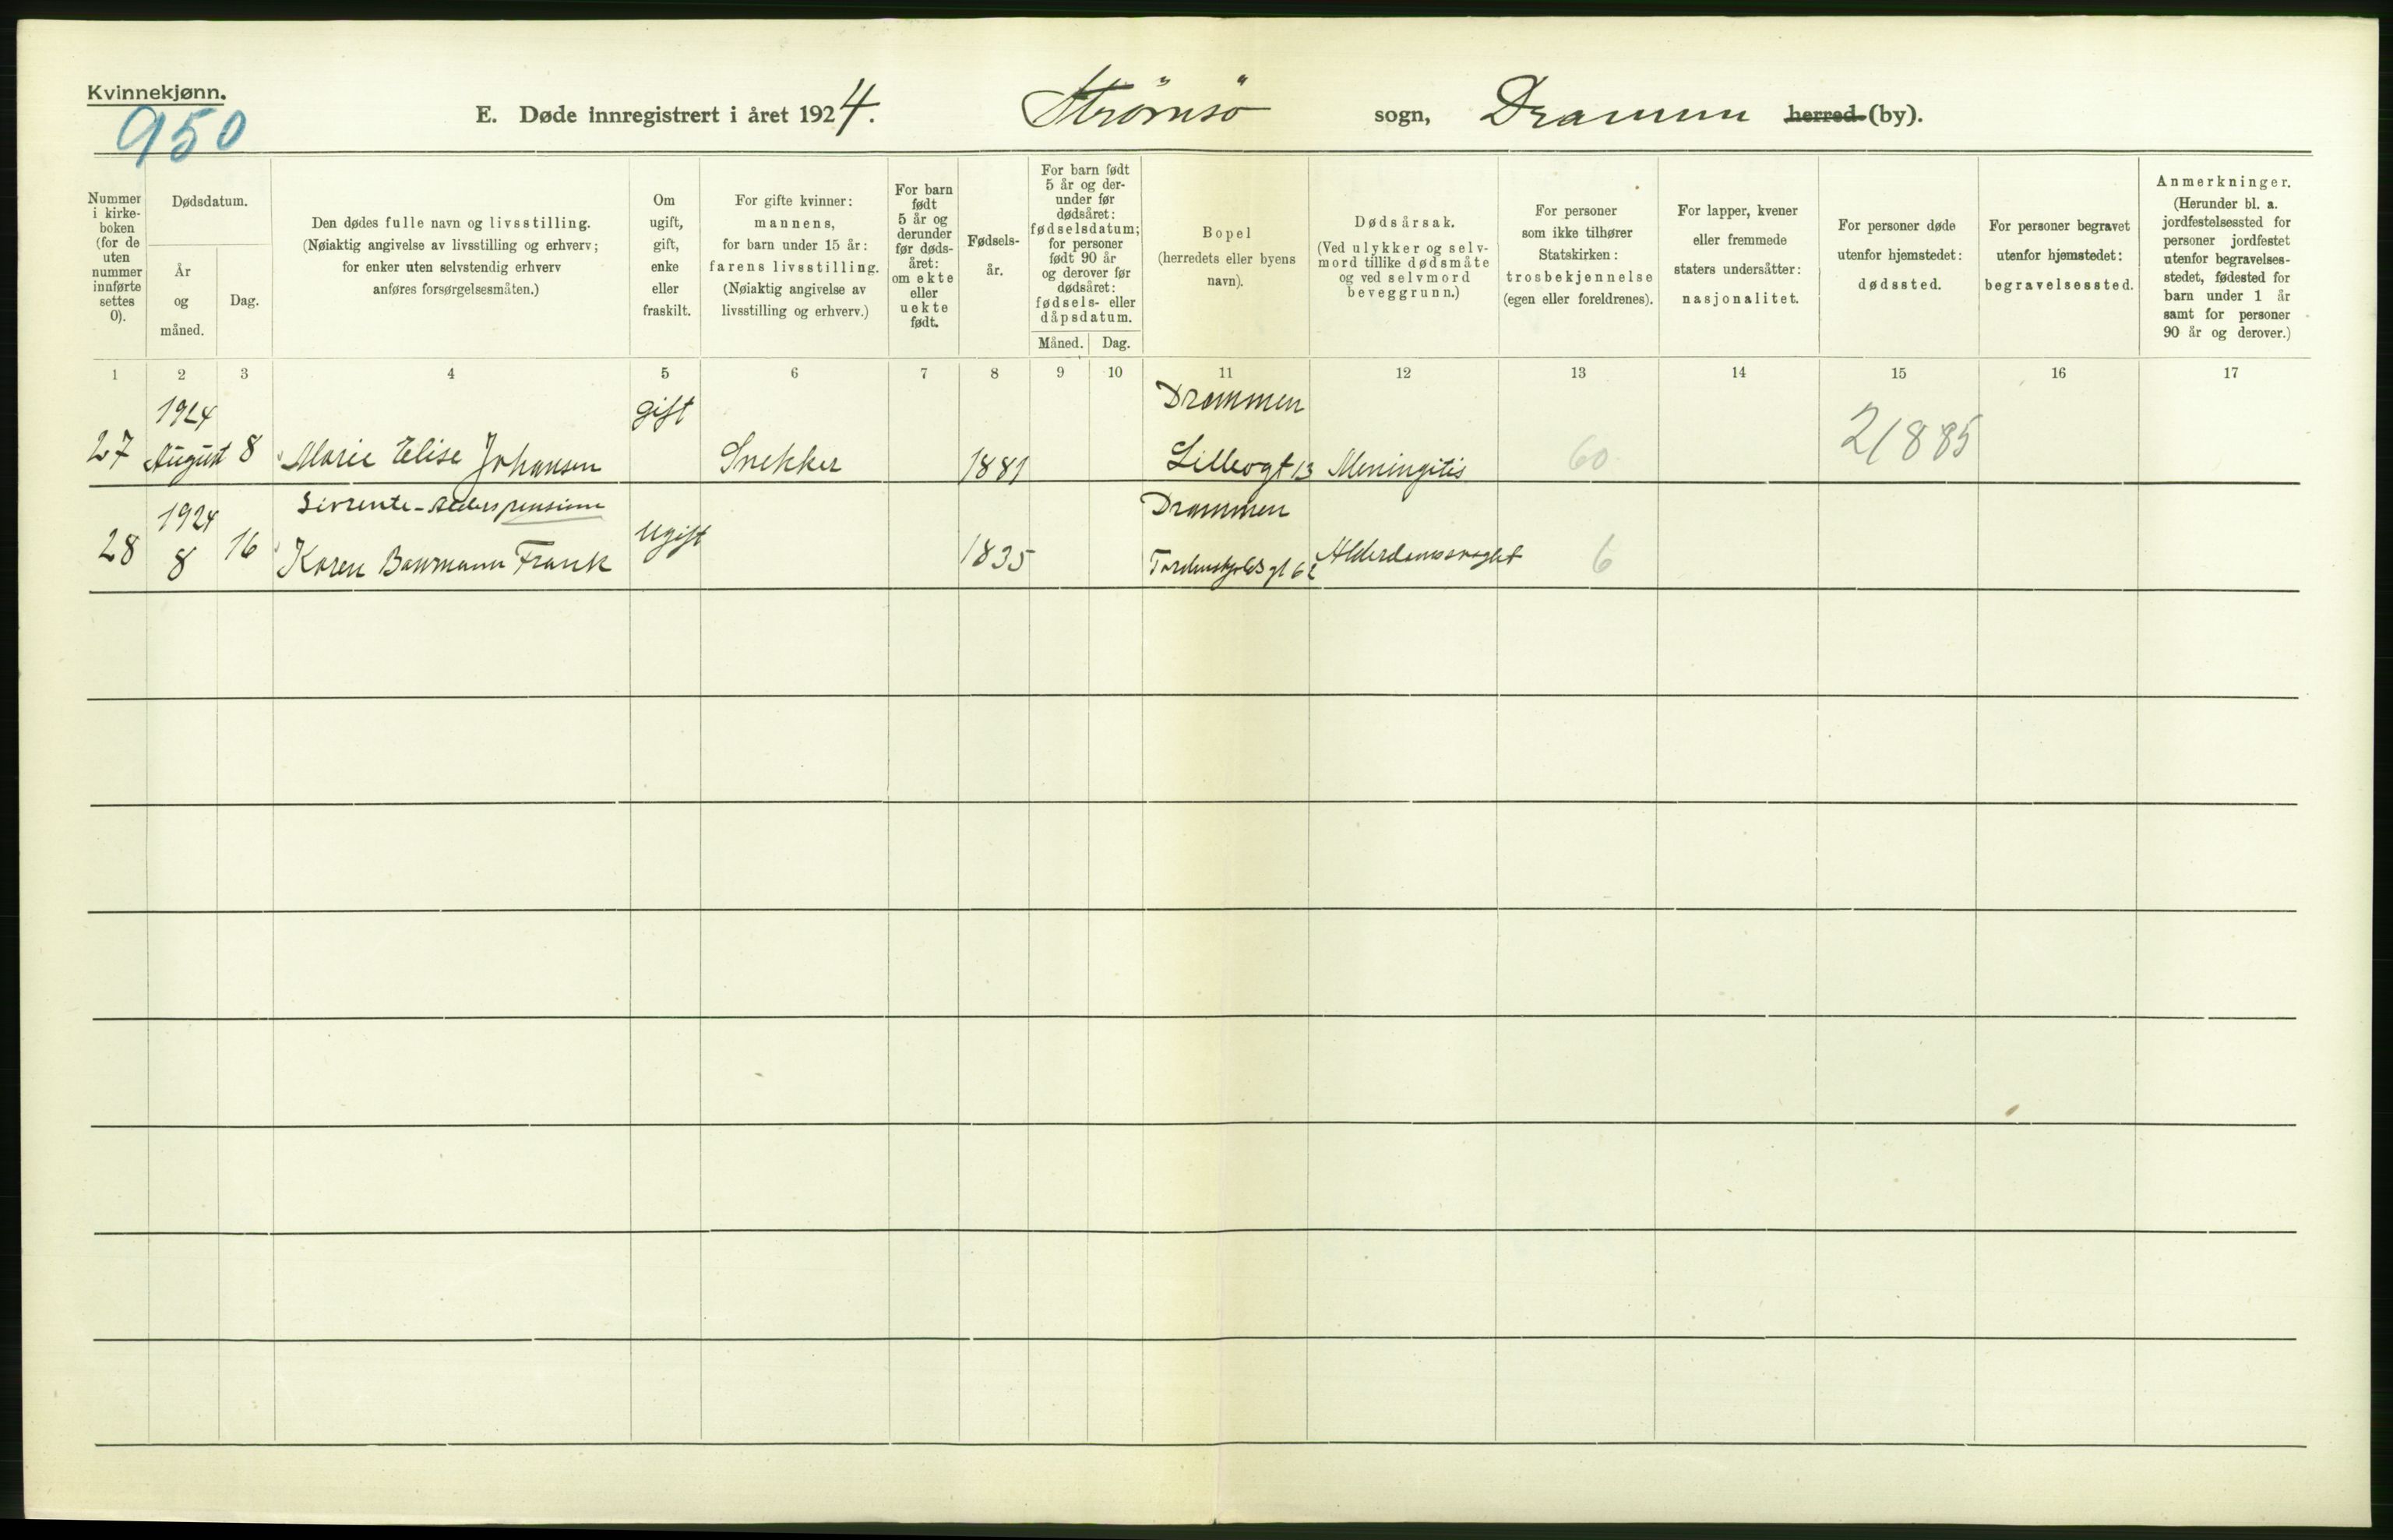 Kvinnekjønn.
950
E. Døde innregistrert i året 1924. Strömsö sogn, Drammen herred (by).
Nummer i kirke- boken (for de uten nummer innførte settes 0).
Dødsdatum.
År og måned.
Dag.
Den dødes fulle navn og livsstilling.
(Nøiaktig angivelse av livsstilling og erhverv;
for enker uten selvstendig erhverv
anføres forsørgelsesmåten.)
Om ugift, gift, enke eller fraskilt.
For gifte kvinner:
mannens,
for barn under 15 år:
farens livsstilling.
(Nøiaktig angivelse av
livsstilling og erhverv.)
For barn født 5 år og derunder før døds- året: om ekte eller uekte født.
Fødsels- år.
For barn født 5 år og der- under før dødsåret: fødselsdatum; for personer født 90 år og derover før dødsåret: fødsels- eller dåpsdatum.
Måned. Dag.
Bopel
(herredets eller byens
navn).
Dødsårsak.
(Ved ulykker og selv-
mord tillike dødsmåte
og ved selvmord
beveggrunn.)
For personer
som ikke tilhører
Statskirken:
trosbekjennelse
(egen eller foreldrenes).
For lapper, kvener
eller fremmede
staters undersåtter:
nasjonalitet.
For personer døde
utenfor hjemstedet:
dødssted.
For personer begravet
utenfor hjemstedet:
begravelsessted.
Anmerkninger.
(Herunder bl. a.
jordfestelsessted for
personer jordfestet
utenfor begravelses-
stedet, fødested for
barn under 1 år
samt for personer
90 år og derover.)
1 2 3 4 5 6 7 8 9 10 11 12 13 14 15 16 17
1924 gift Drammen
27 August 8 Marie Elise Johansen Snekker 1881 Lilleogt 13 Meningitis 60 21885
1924 Livrente-Alderspensione Drammen
28 8 16 Karen Bowmann Frank ugift 1835 Tordenskjolds gt 62 Alderdomssvaghet 6